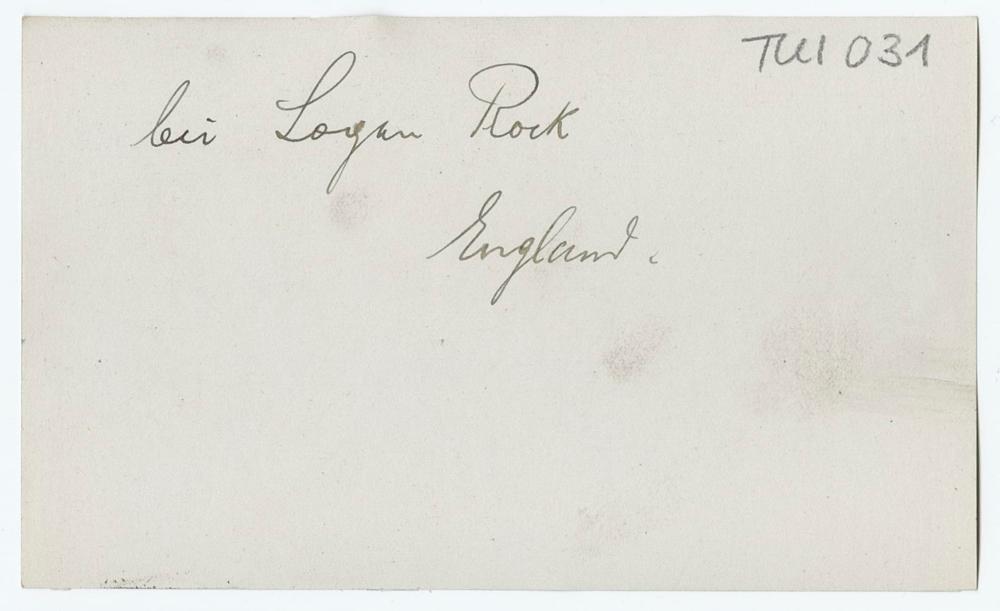 TUI 031
bei Logan Rock
England.